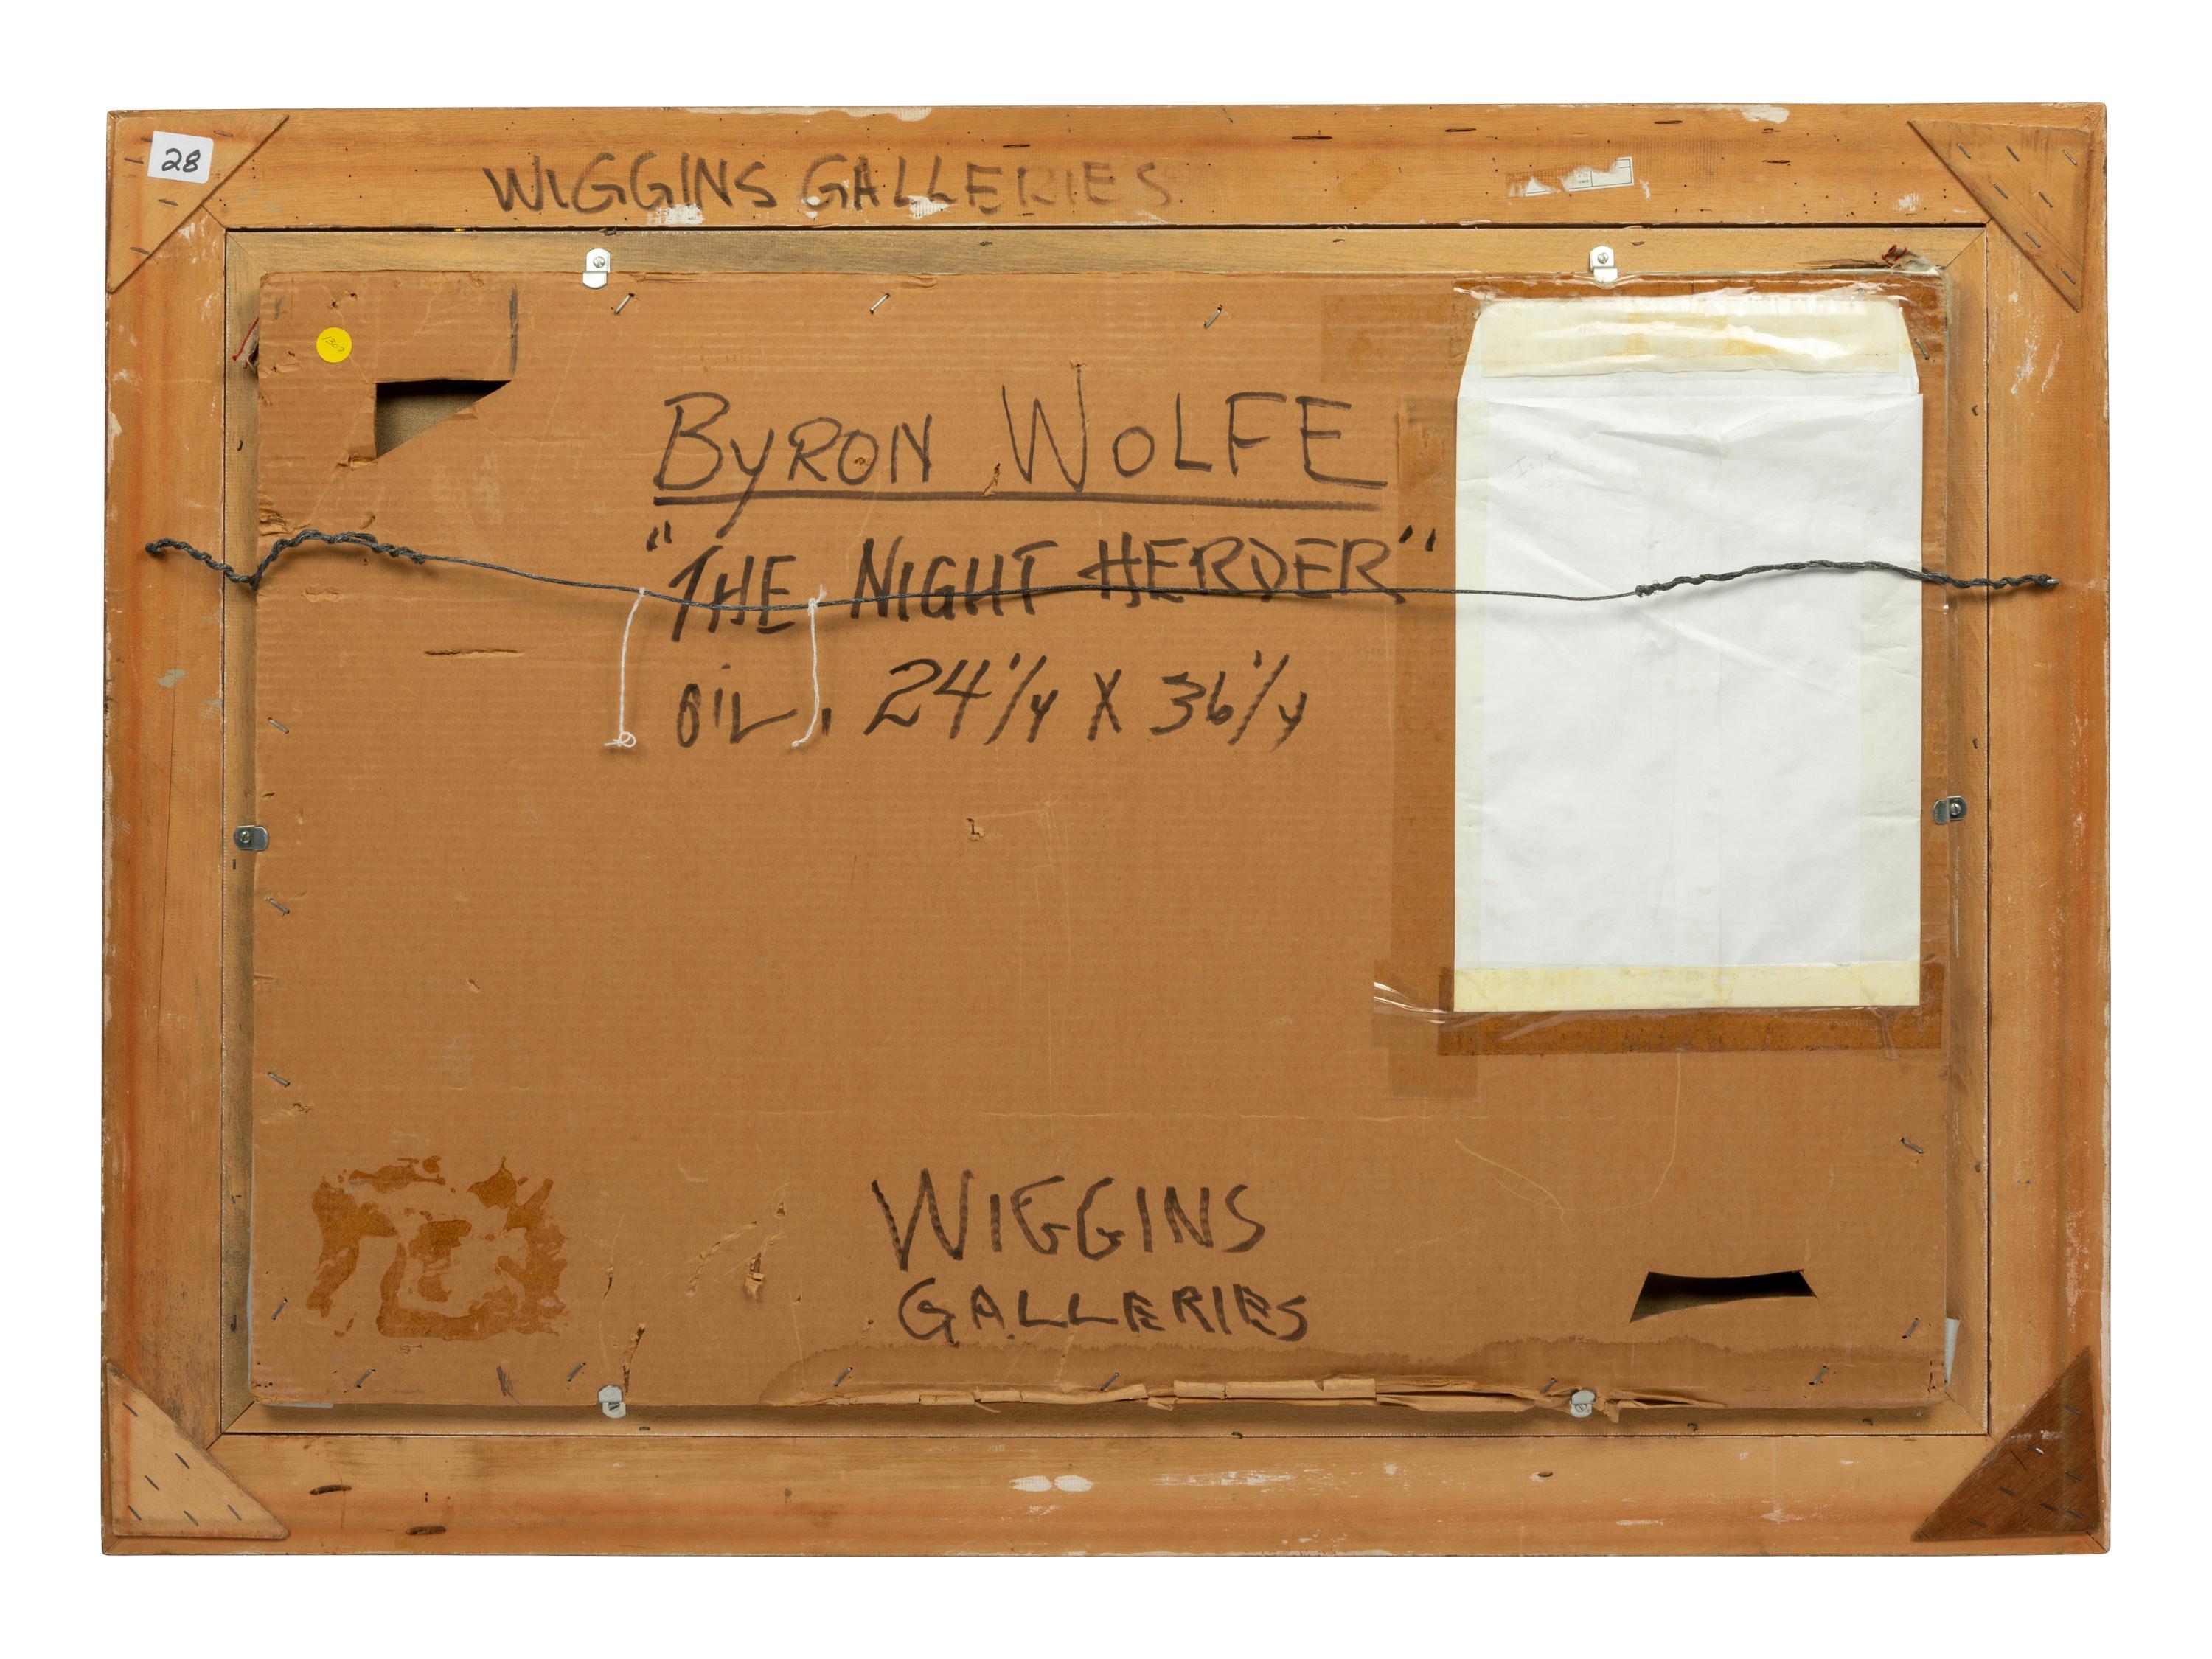 28
WIGGINS GALLERIES
1307
BYRON WOLFE
"THE NIGHT HERDER"
OIL, 24 1/4 X 36 1/4
WIGGINS
GALLERIES